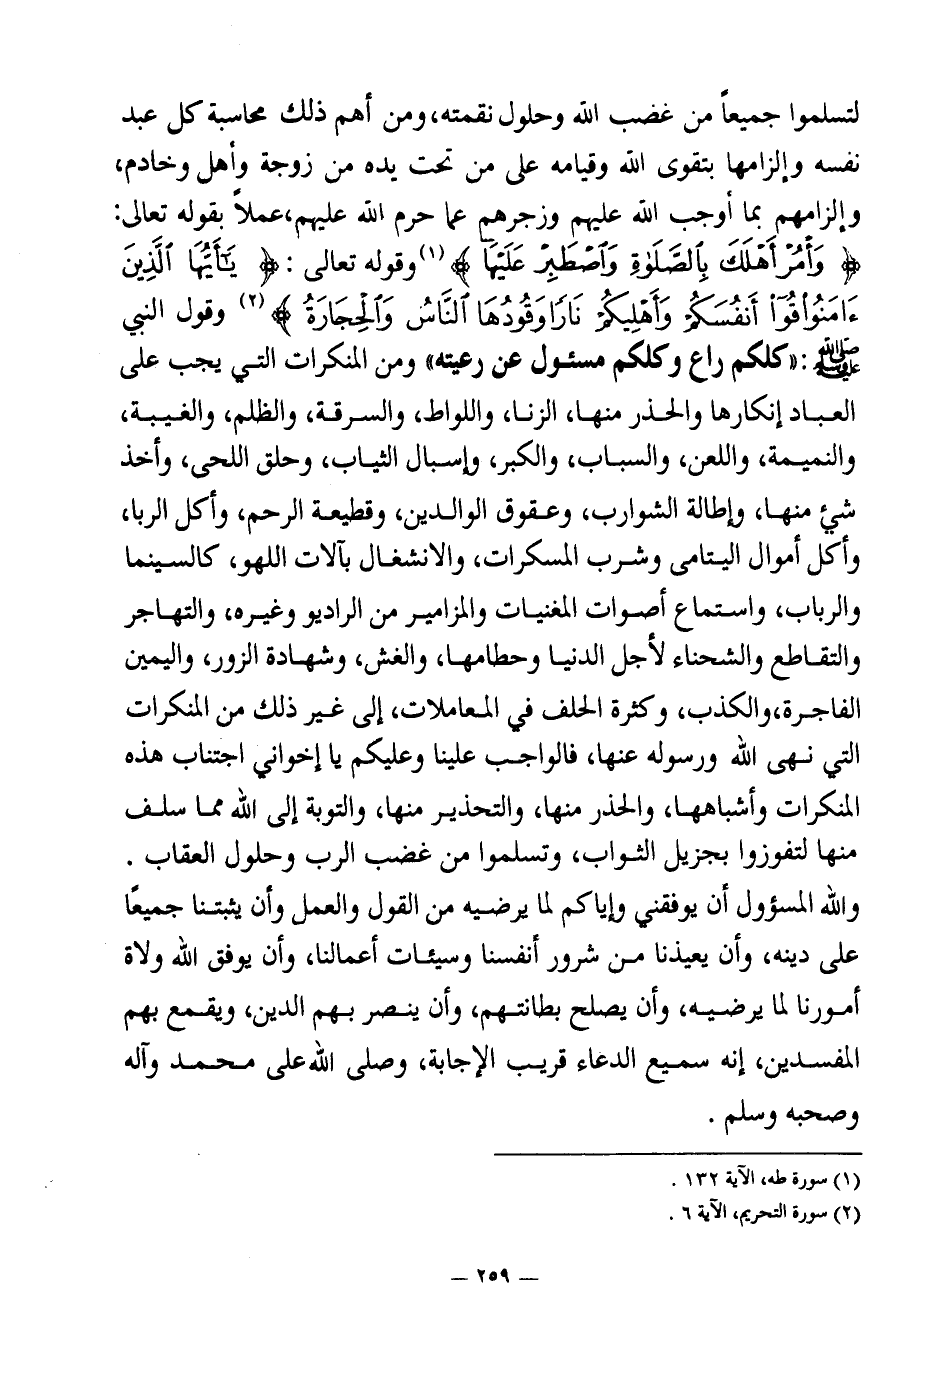 لتسلموا جميعاً من غضب الله وحلول نقمته، ومن أهم ذلك محاسبة كل عبد
نفسه وإلزامها بتقوى الله وقيامه على من تحت يده من زوجة وأهل وخادم،
وإلزامهم بما أوجب الله عليهم وزجرهم عما حرم الله عليهم، عملاً بقوله تعالى:
﴿ وَأْمُرْ أَهْلَكَ بِٱلصَّلَوٰةِ وَٱصْطَبِرْ عَلَيْهَا ﴾(١) وقوله تعالى : ﴿ يَـٰٓأَيُّهَا ٱلَّذِينَ
ءَامَنُوا۟ قُوٓا۟ أَنفُسَكُمْ وَأَهْلِيكُمْ نَارًا وَقُودُهَا ٱلنَّاسُ وَٱلْحِجَارَةُ ﴾(٢) وقول النبي
ﷺ : «كلكم راع وكلكم مسئول عن رعيته» ومن المنكرات التي يجب على
العباد إنكارها والحذر منها، الزنا، واللواط، والسرقة، والظلم، والغيبة،
والنميمة، واللعن، والسباب، والكبر، وإسبال الثياب، وحلق اللحى، وأخذ
شئ منها، وإطالة الشوارب، وعقوق الوالدين، وقطيعة الرحم، وأكل الربا،
وأكل أموال اليتامى وشرب المسكرات، والانشغال بآلات اللهو، كالسينما
والرباب، واستماع أصوات المغنيات والمزامير من الراديو وغيره، والتهاجر
والتقاطع والشحناء لأجل الدنيا وحطامها، والغش، وشهادة الزور، واليمين
الفاجرة، والكذب، وكثرة الحلف في المعاملات، إلى غير ذلك من المنكرات
التي نهى الله ورسوله عنها، فالواجب علينا وعليكم يا إخواني اجتناب هذه
المنكرات وأشباهها، والحذر منها، والتحذير منها، والتوبة إلى الله مما سلف
منها لتفوزوا بجزيل الثواب، وتسلموا من غضب الرب وحلول العقاب .
والله المسؤول أن يوفقني وإياكم لما يرضيه من القول والعمل وأن يثبتنا جميعًا
على دينه، وأن يعيذنا من شرور أنفسنا وسيئات أعمالنا، وأن يوفق الله ولاة
أمورنا لما يرضيه، وأن يصلح بطانتهم، وأن ينصر بهم الدين، ويقمع بهم
المفسدين، إنه سميع الدعاء قريب الإجابة، وصلى الله على محمد وآله
وصحبه وسلم .
(١) سورة طه، الآية ١٣٢ .
(٢) سورة التحريم، الآية ٦ .
— ٢٥٩ —